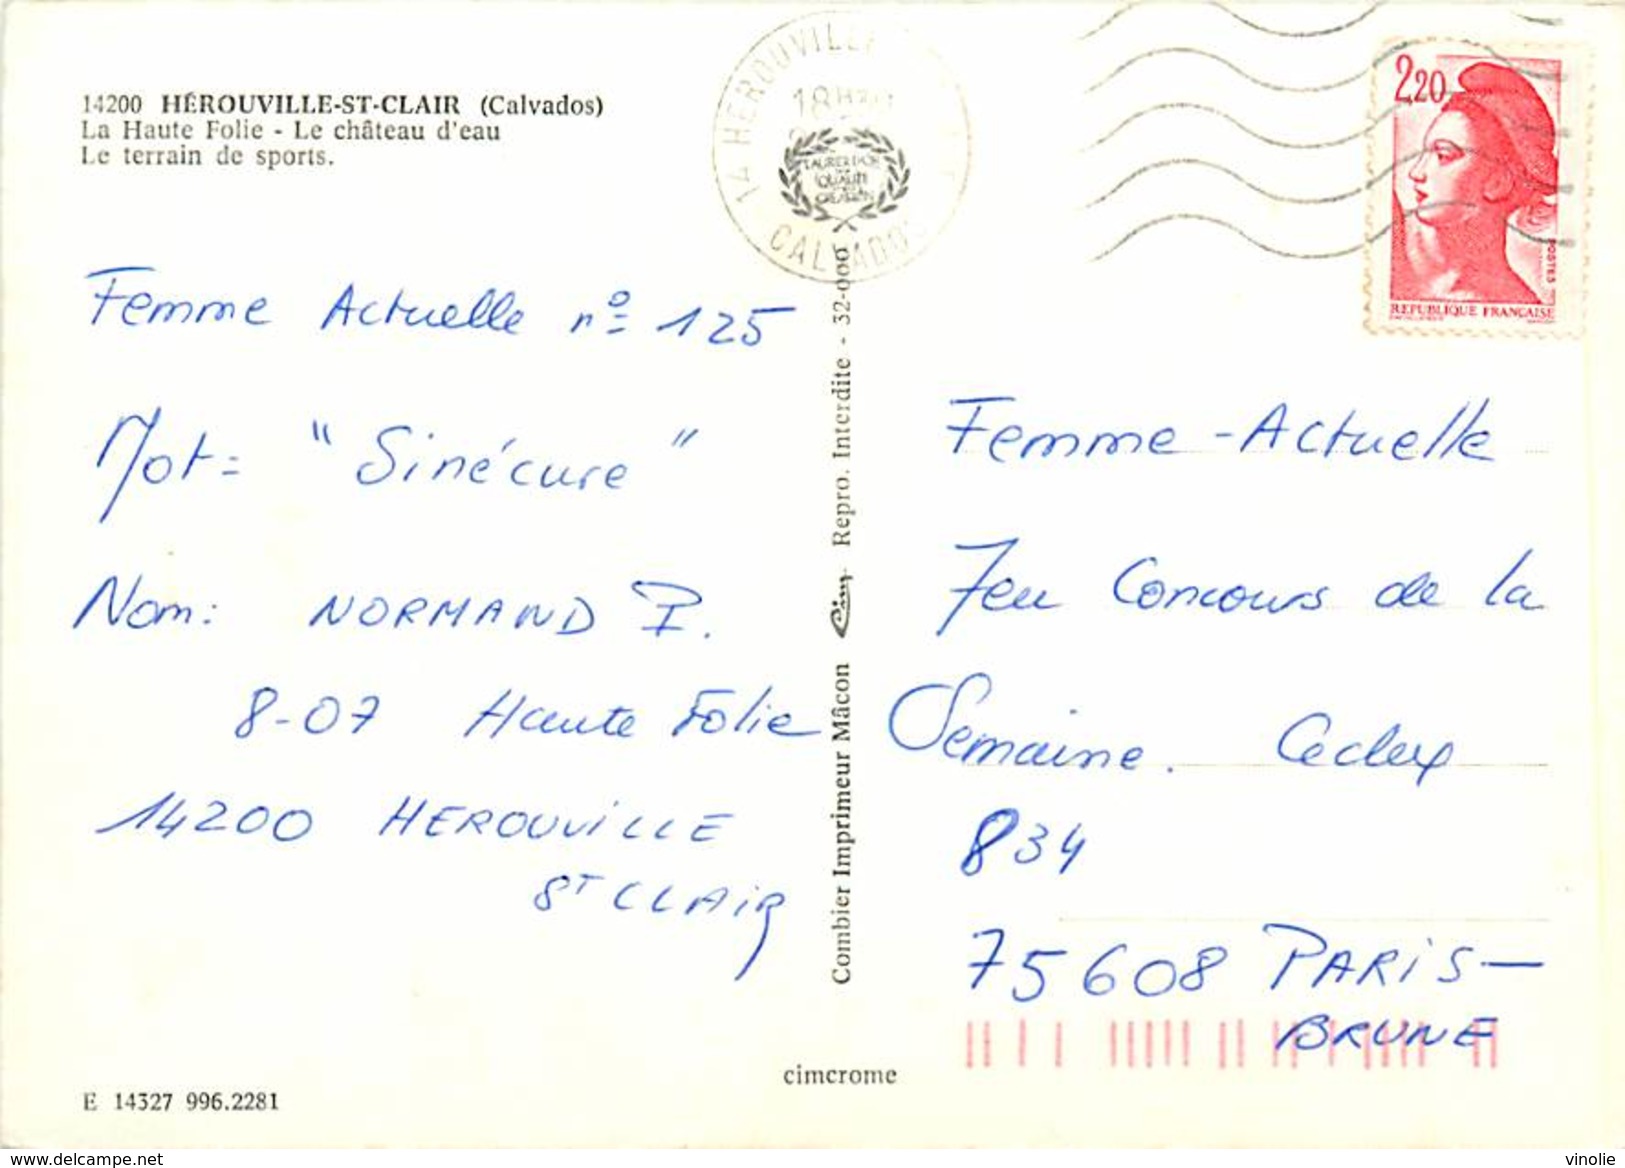 14200 HÉROUVILLE-ST-CLAIR (Calvados)
La Haute Folie - Le château d'eau
Le terrain de sports.
14 HEROUVILLE
18H
CALVADOS
LAURIER D'OR
QUALITÉ
2,20
POSTES
REPUBLIQUE FRANÇAISE
Femme Actuelle nº 125
Mot = "Sinécure"
Nom: NORMAND I.
8-07 Haute Folie
14200 HEROUVILLE
ST CLAIR
Combier Imprimeur Mâcon Cim Repro. Interdite - 32-000
Femme-Actuelle
Jeu Concours de la
Semaine. Cedex
834
75608 PARIS-
BRUNE
cimcrome
E 14327 996.2281
www.delcampe.net
vinolie